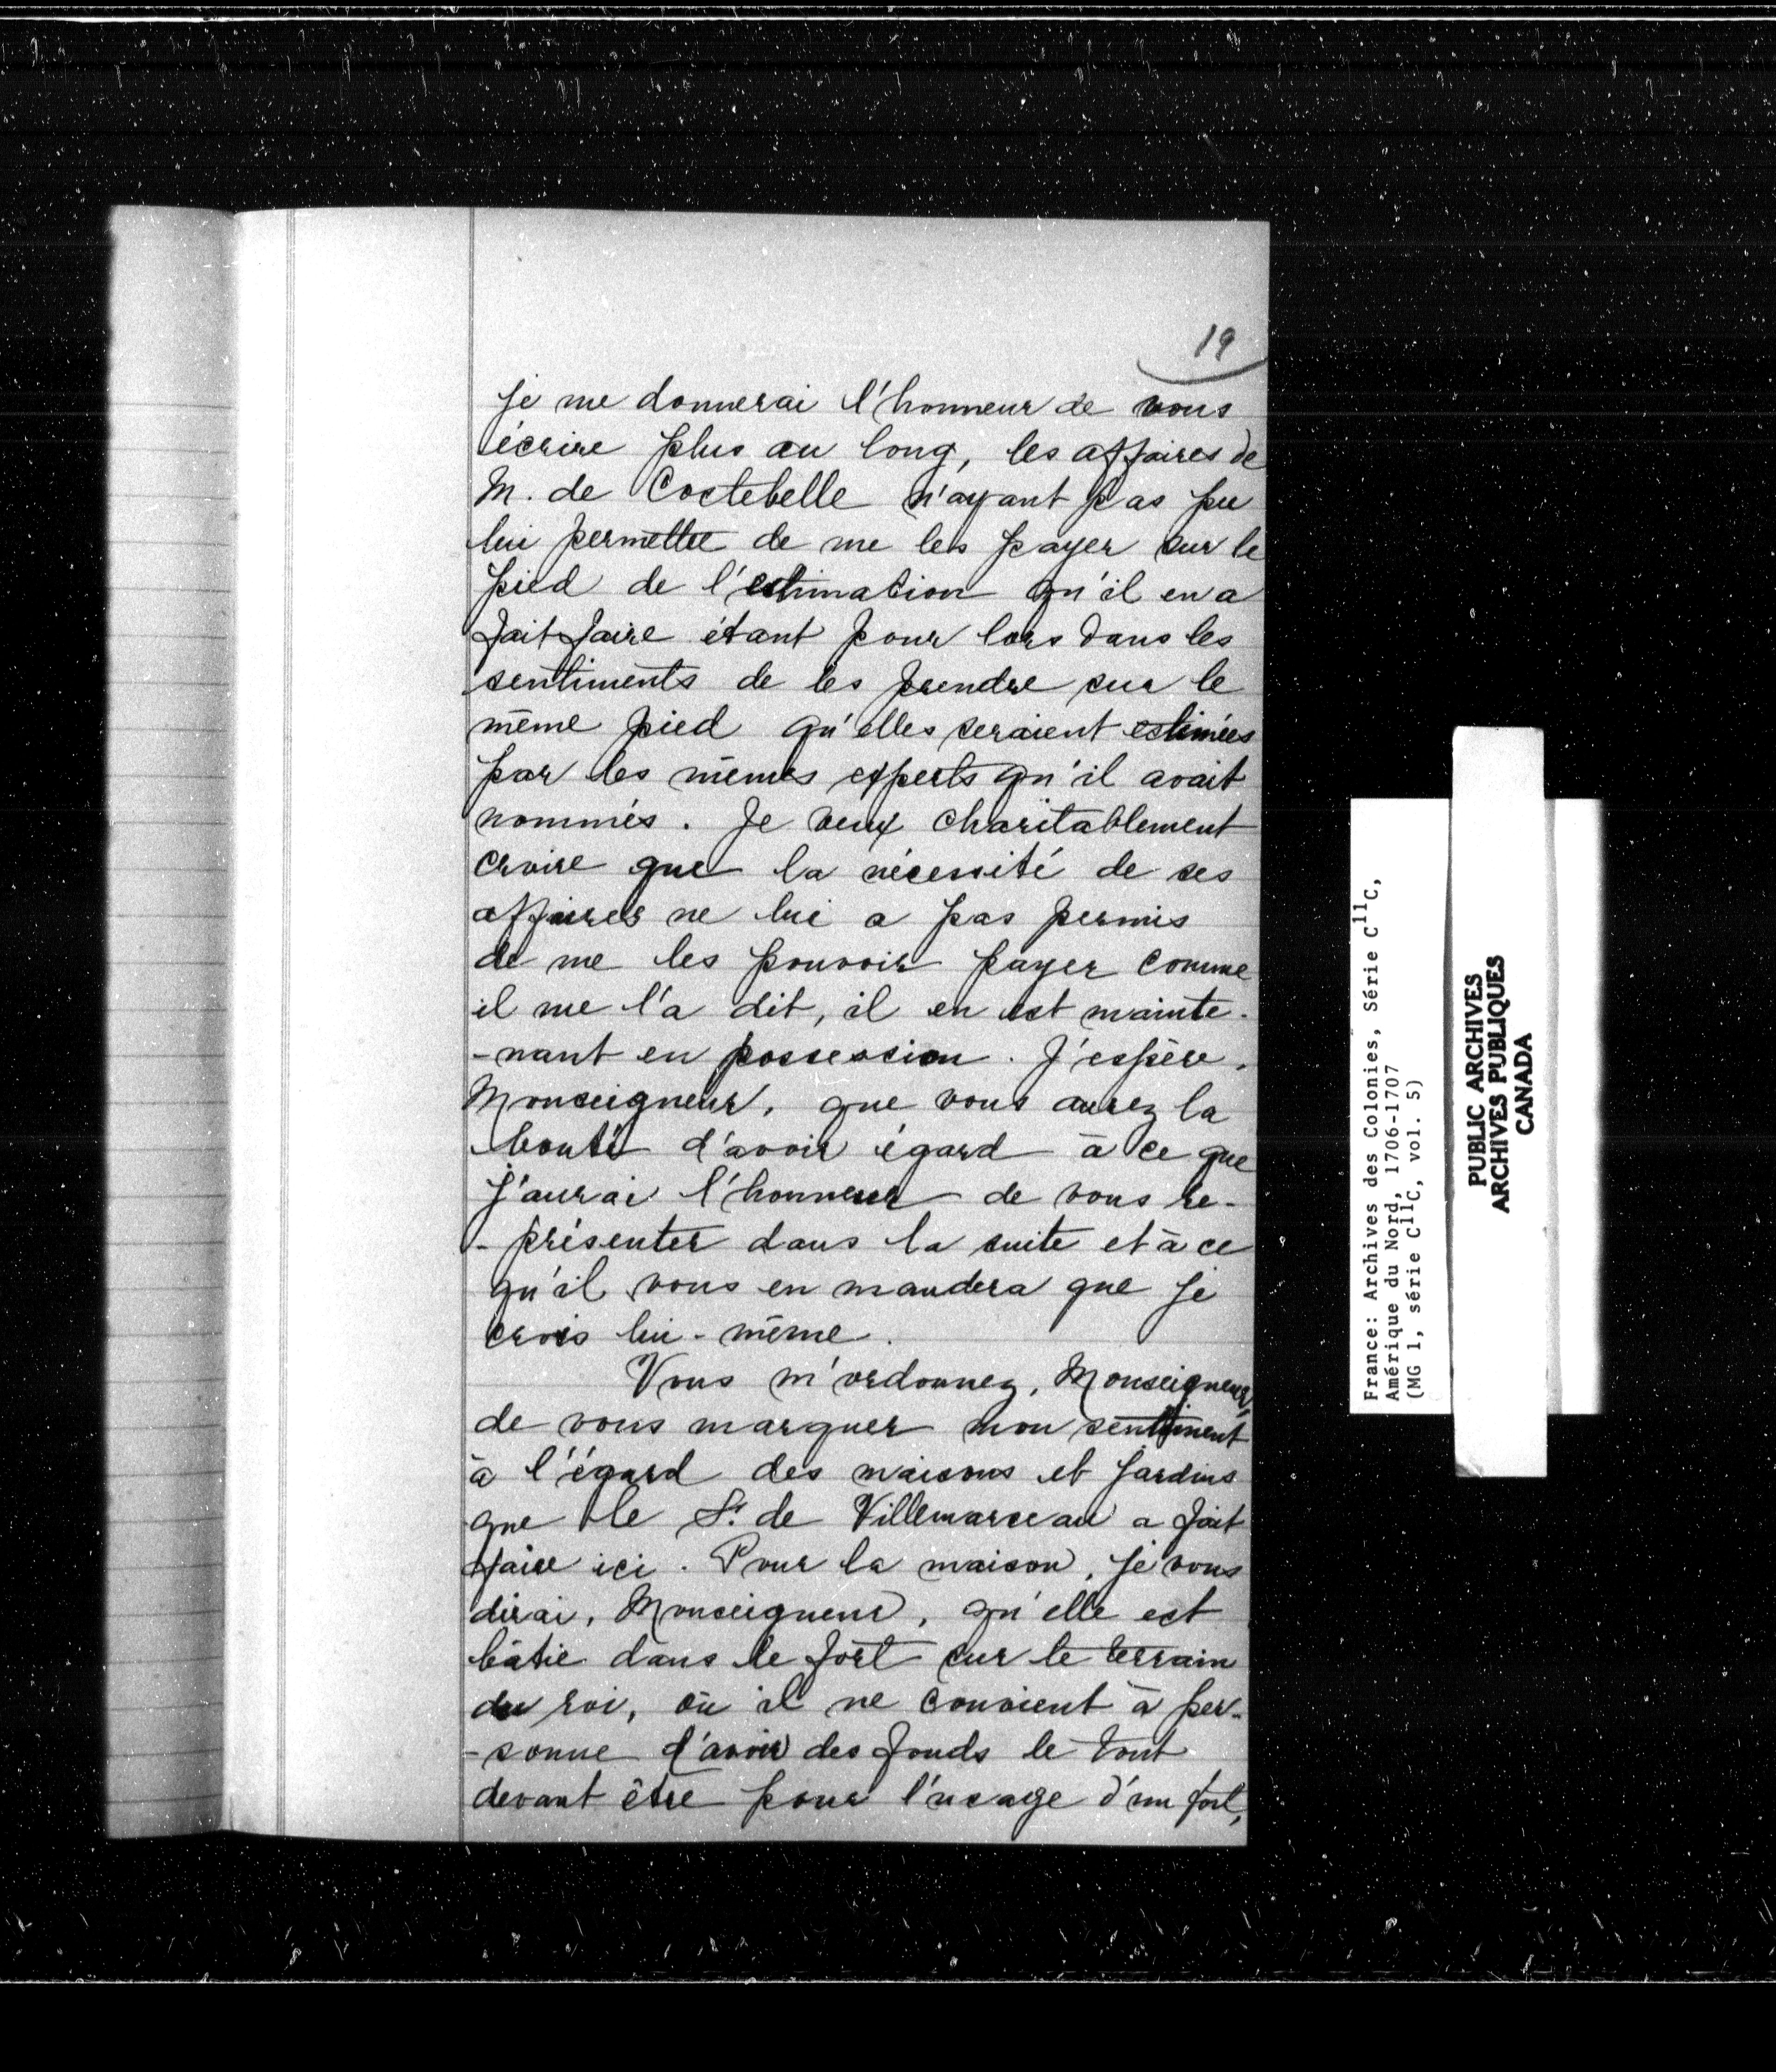 19
je me donnerai l'honneur de vous
écrire plus au long, les affaires de
M. de Costebelle n'ayant pas pu
lui permettre de me les payer sur le
pied de l'estimation qu'il en a
fait faire étant pour lors dans les
sentiments de les prendre sur le
même pied qu'elles seraient estimées
par les mêmes experts qu'il avait
nommés. Je veux charitablement
croire que la nécessité de ses
affaires ne lui a pas permis
de me les pouvoir payer comme
il me l'a dit, il en est mainte-
-nant en possession. J'espère,
Monseigneur, que vous aurez la
bonté d'avoir égard à ce que
j'aurai l'honneur de vous re-
-présenter dans la suite et à ce
qu'il vous en mandera que je
crois lui-même.
Vous m'ordonnez, Monseigneur,
de vous marquer mon sentiment
à l'égard des maisons et jardins
que le Sr. de Villemarceau a fait
faire ici. Pour la maison, je vous
dirai, Monseigneur, qu'elle est
bâtie dans le fort sur le terrain
du roi, où il ne convient à per-
-sonne d'avoir des fonds le tout
devant être pour l'usage d'un fort,
France: Archives des Colonies, Série C11C,
Amérique du Nord, 1706-1707
(MG 1, série C11C, vol. 5)
PUBLIC ARCHIVES
ARCHIVES PUBLIQUES
CANADA